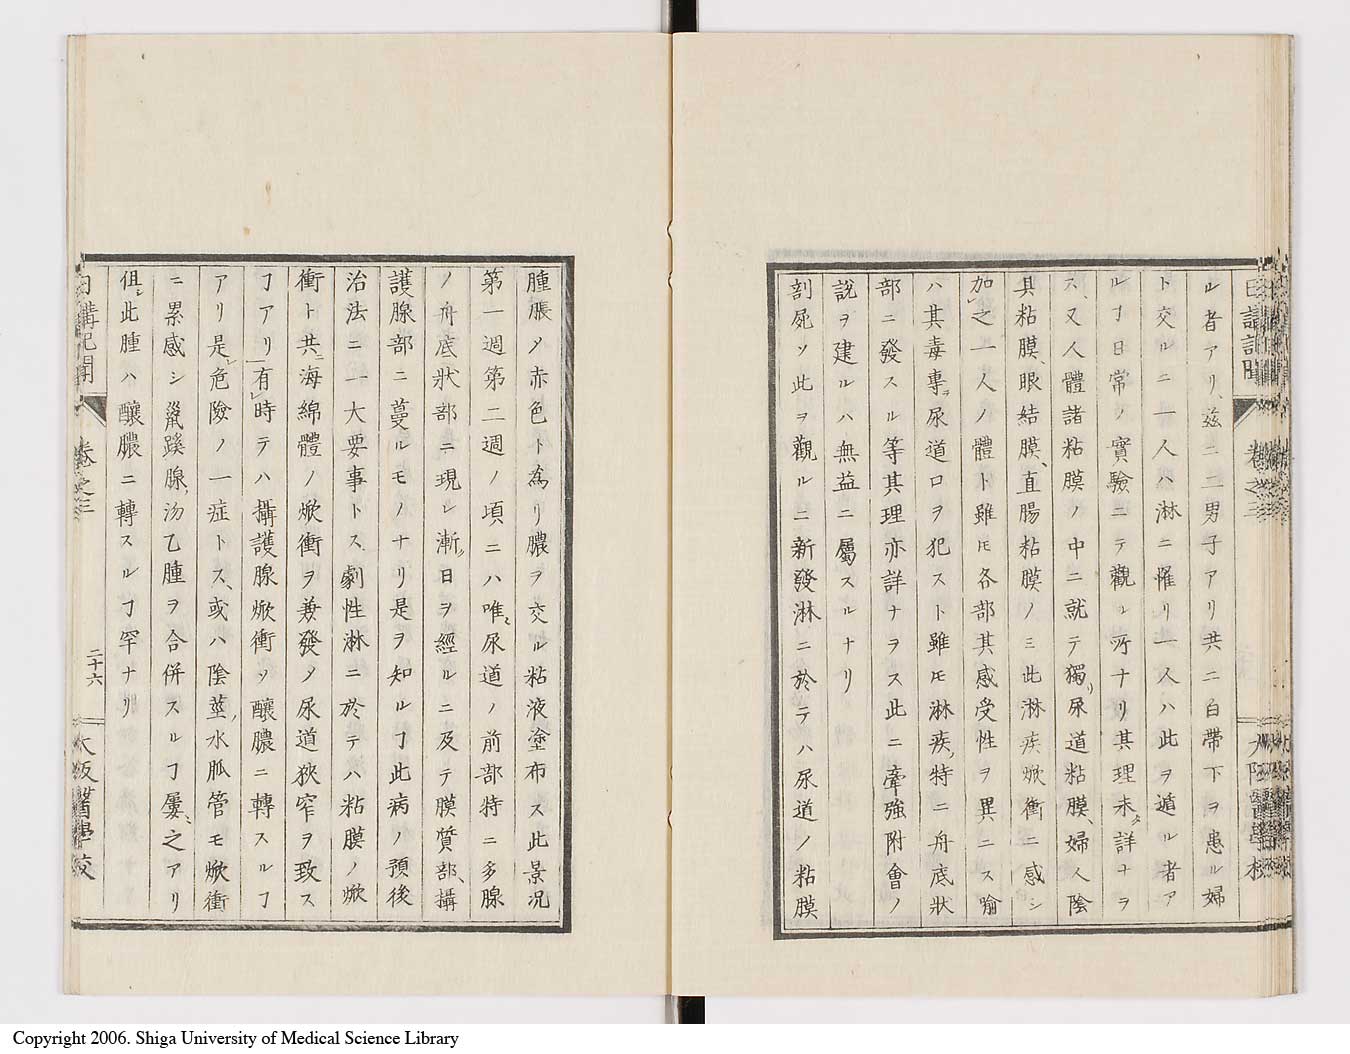 ル者アリ、茲ニ二男子アリ共ニ白帶下ヲ患ル婦
ト交ルニ一人ハ淋ニ罹リ一人ハ此ヲ遁ル者ア
ルヿ日常ノ實驗ニテ觀ル所ナリ其理未タ詳ナラ
ス、又人體諸粘膜ノ中ニ就テ獨リ尿道粘膜、婦人陰
具粘膜、眼結膜、直腸粘膜ノミ此淋疾焮衝ニ感シ
加之一人ノ體ト雖モ各部其感受性ヲ異ニス喻
ハ其毒專ラ尿道口ヲ犯スト雖モ淋疾ノ特ニ舟底狀
部ニ發スル等其理亦詳ナラス此ニ牽強附會ノ
說ヲ建ルハ無益ニ屬スルナリ
剖屍ノ此ヲ觀ルニ新發淋ニ於テハ尿道ノ粘膜
腫脹メ赤色ト為リ膿ヲ交ル粘液塗布ス此景況
第一週第二週ノ頃ニハ唯ミ尿道ノ前部特ニ多腺
ノ舟底狀部ニ現レ漸ク日ヲ經ルニ及テ膜質部、攝
護腺部ニ蔓ルモノナリ是ヲ知ルヿ此病ノ預後
治法ニ一大要事トス劇性淋ニ於テハ粘膜ノ焮
衝ト共ニ海綿體ノ焮衝ヲ兼發メ尿道狹窄ヲ致ス
ヿアリ有時テハ攝護腺焮衝メ釀膿ニ轉スルヿ
アリ是レ危險ノ一症トス、或ハ陰莖ノ水脈管モ焮衝
ニ累感シ鼠蹊腺ノ汤乙腫ヲ合併スルヿ屢ミ之アリ
但シ此腫ハ釀膿ニ轉スルヿ罕ナリ
日講記聞
卷之三
二十六
大阪醫學校